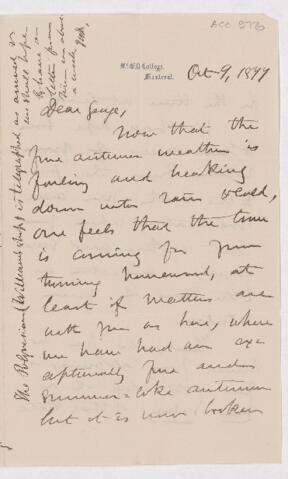 ACC. 877
McGill College,
Montreal.
Oct. 9, 1877
Dear George,
Now that the
fine autumn weather is
and breaking
down into rain & cold,
one feels that the time
is coming for your
turning homeward, at
least if matters are
with you as here, where
we have had an ex-
ceptionally fine and
summer-like autumn
but it is now broken
The Polynesian (William's ship) is telegraphed as arrived &
we shall hope
to have a
letter from
him in about
a week.